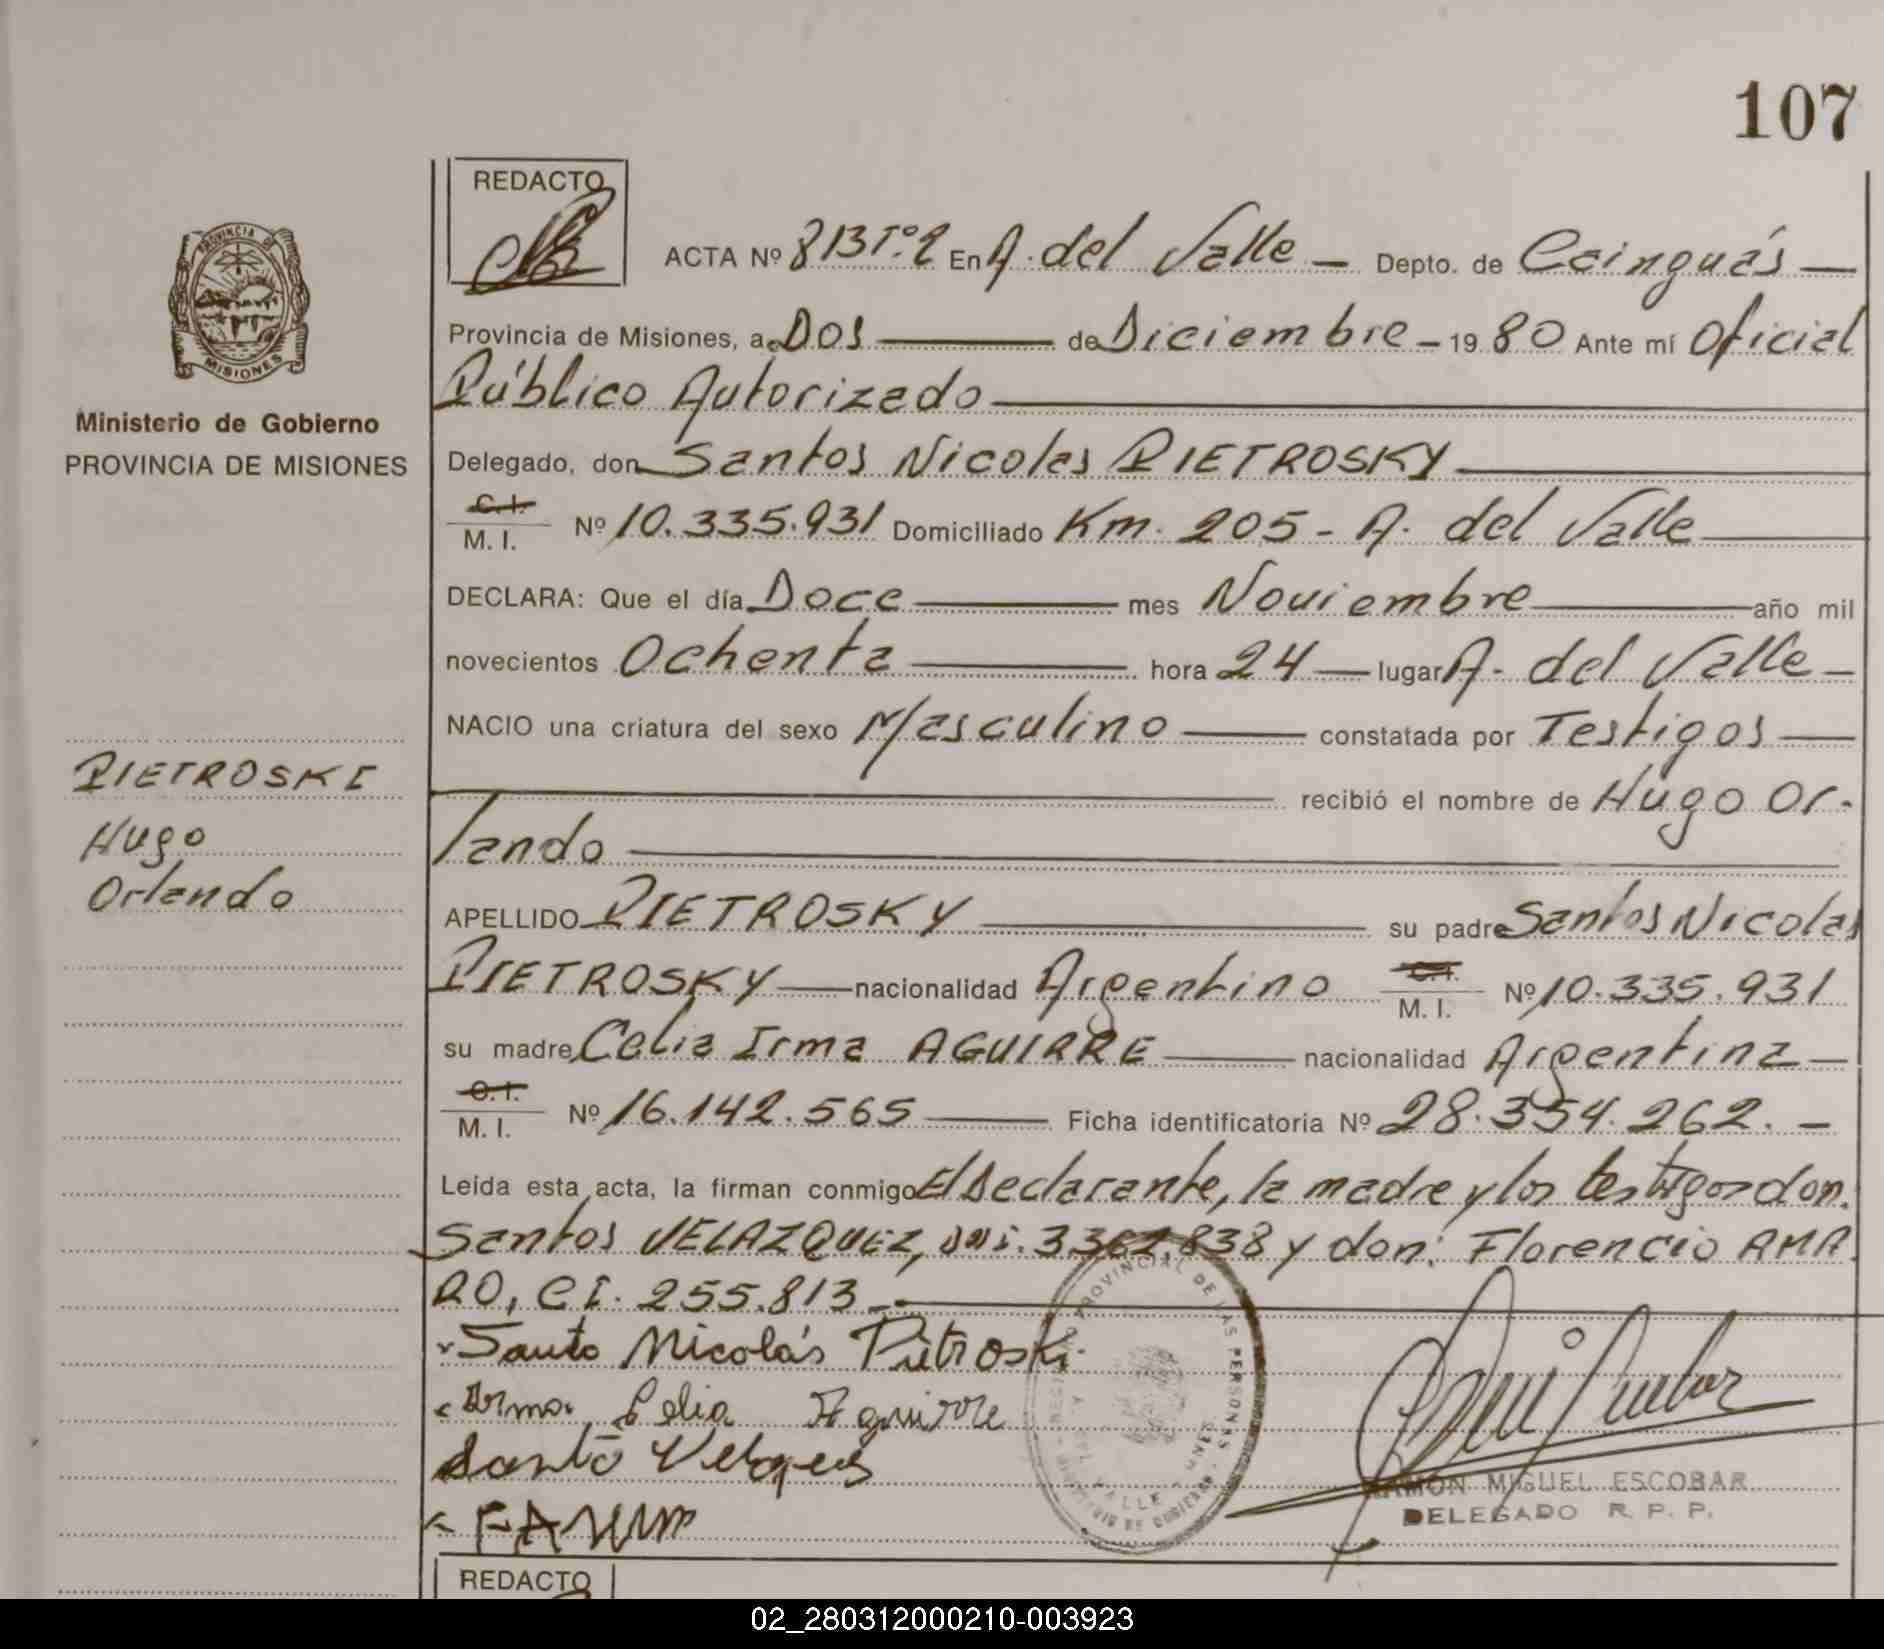 107
REDACTO
ACTA Nº 813 Tº.2 En A. del Valle — Depto. de Cainguás —
Provincia de Misiones, a Dos — de Diciembre - 19 80 Ante mí Oficial
Público Autorizado
Delegado, don Santos Nicolas PIETROSKY
C. I.
M. I. Nº 10.335.931 Domiciliado Km. 205 - A. del Valle
DECLARA: Que el día Doce mes Noviembre año mil
novecientos Ochenta hora 24 — lugar A. del Valle -
NACIO una criatura del sexo Masculino constatada por Testigos
recibió el nombre de Hugo Or-
lando
APELLIDO PIETROSKY su padre Santos Nicolas
PIETROSKY — nacionalidad Argentino C. I. M. I. Nº 10.335.931
su madre Celia Irma AGUIRRE nacionalidad Argentina
C. I.
M. I. Nº 16.142.565 Ficha identificatoria Nº 28.354.262. -
Leida esta acta, la firman conmigo El Declarante, la madre y los testigos don.
Santos VELAZQUEZ, DNI. 3.362.838 y don: Florencio AMA
RO, CI. 255.813 -
Santo Nicolás Pietroski
Irma Celia Aguirre
Santo Velaques
RAMON MIGUEL ESCOBAR
DELEGADO R. P. P.
REGISTRO PROVINCIAL DE LAS PERSONAS
MINISTERIO DE GOBIERNO
A. DEL VALLE
PROVINCIA DE
MISIONES
Ministerio de Gobierno
PROVINCIA DE MISIONES
PIETROSKI
Hugo
Orlando
REDACTO
02_280312000210-003923